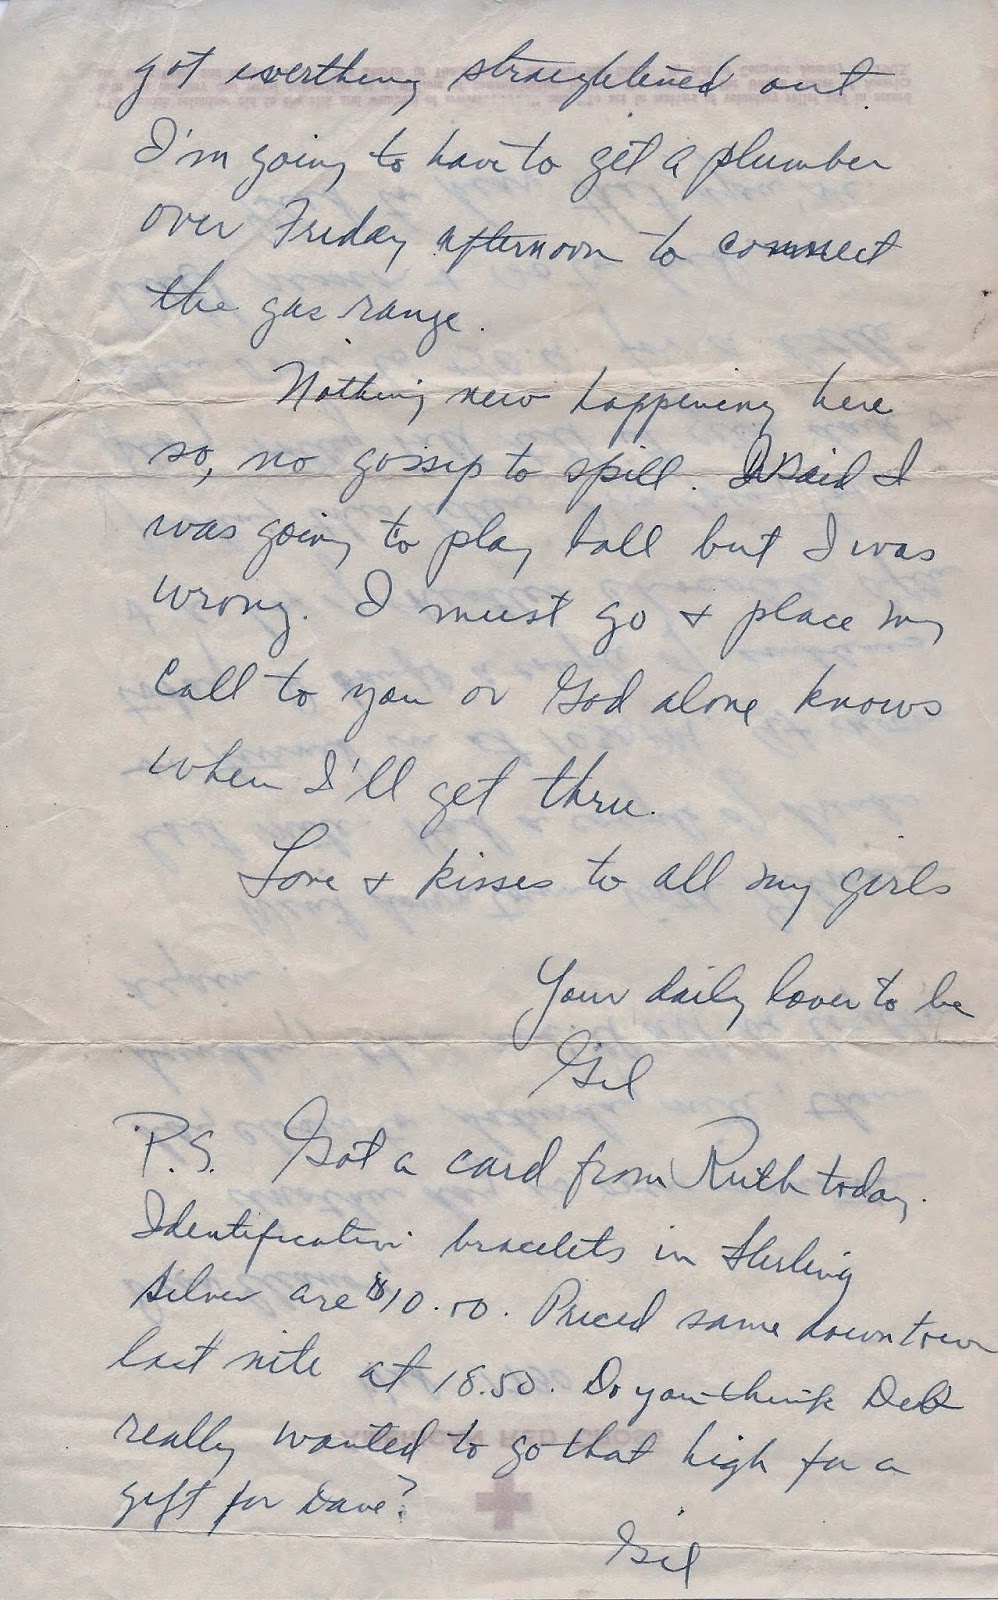 got everthing straightened out.
I'm going to have to get a plumber
over Friday afternoon to connect
the gas range.
Nothing new happening here
so, no gossip to spill. I said I
was going to play ball but I was
wrong. I must go + place my
call to you or God alone knows
when I'll get thru.
Love + kisses to all my girls
Your daily lover to be
Gil
P.S. Got a card from Ruth today.
Identification bracelets in Sterling
Silver are $10.00. Priced same downtown
last nite at 18.50. Do you think Deb
really wanted to go that high for a
gift for Dave?
Gil